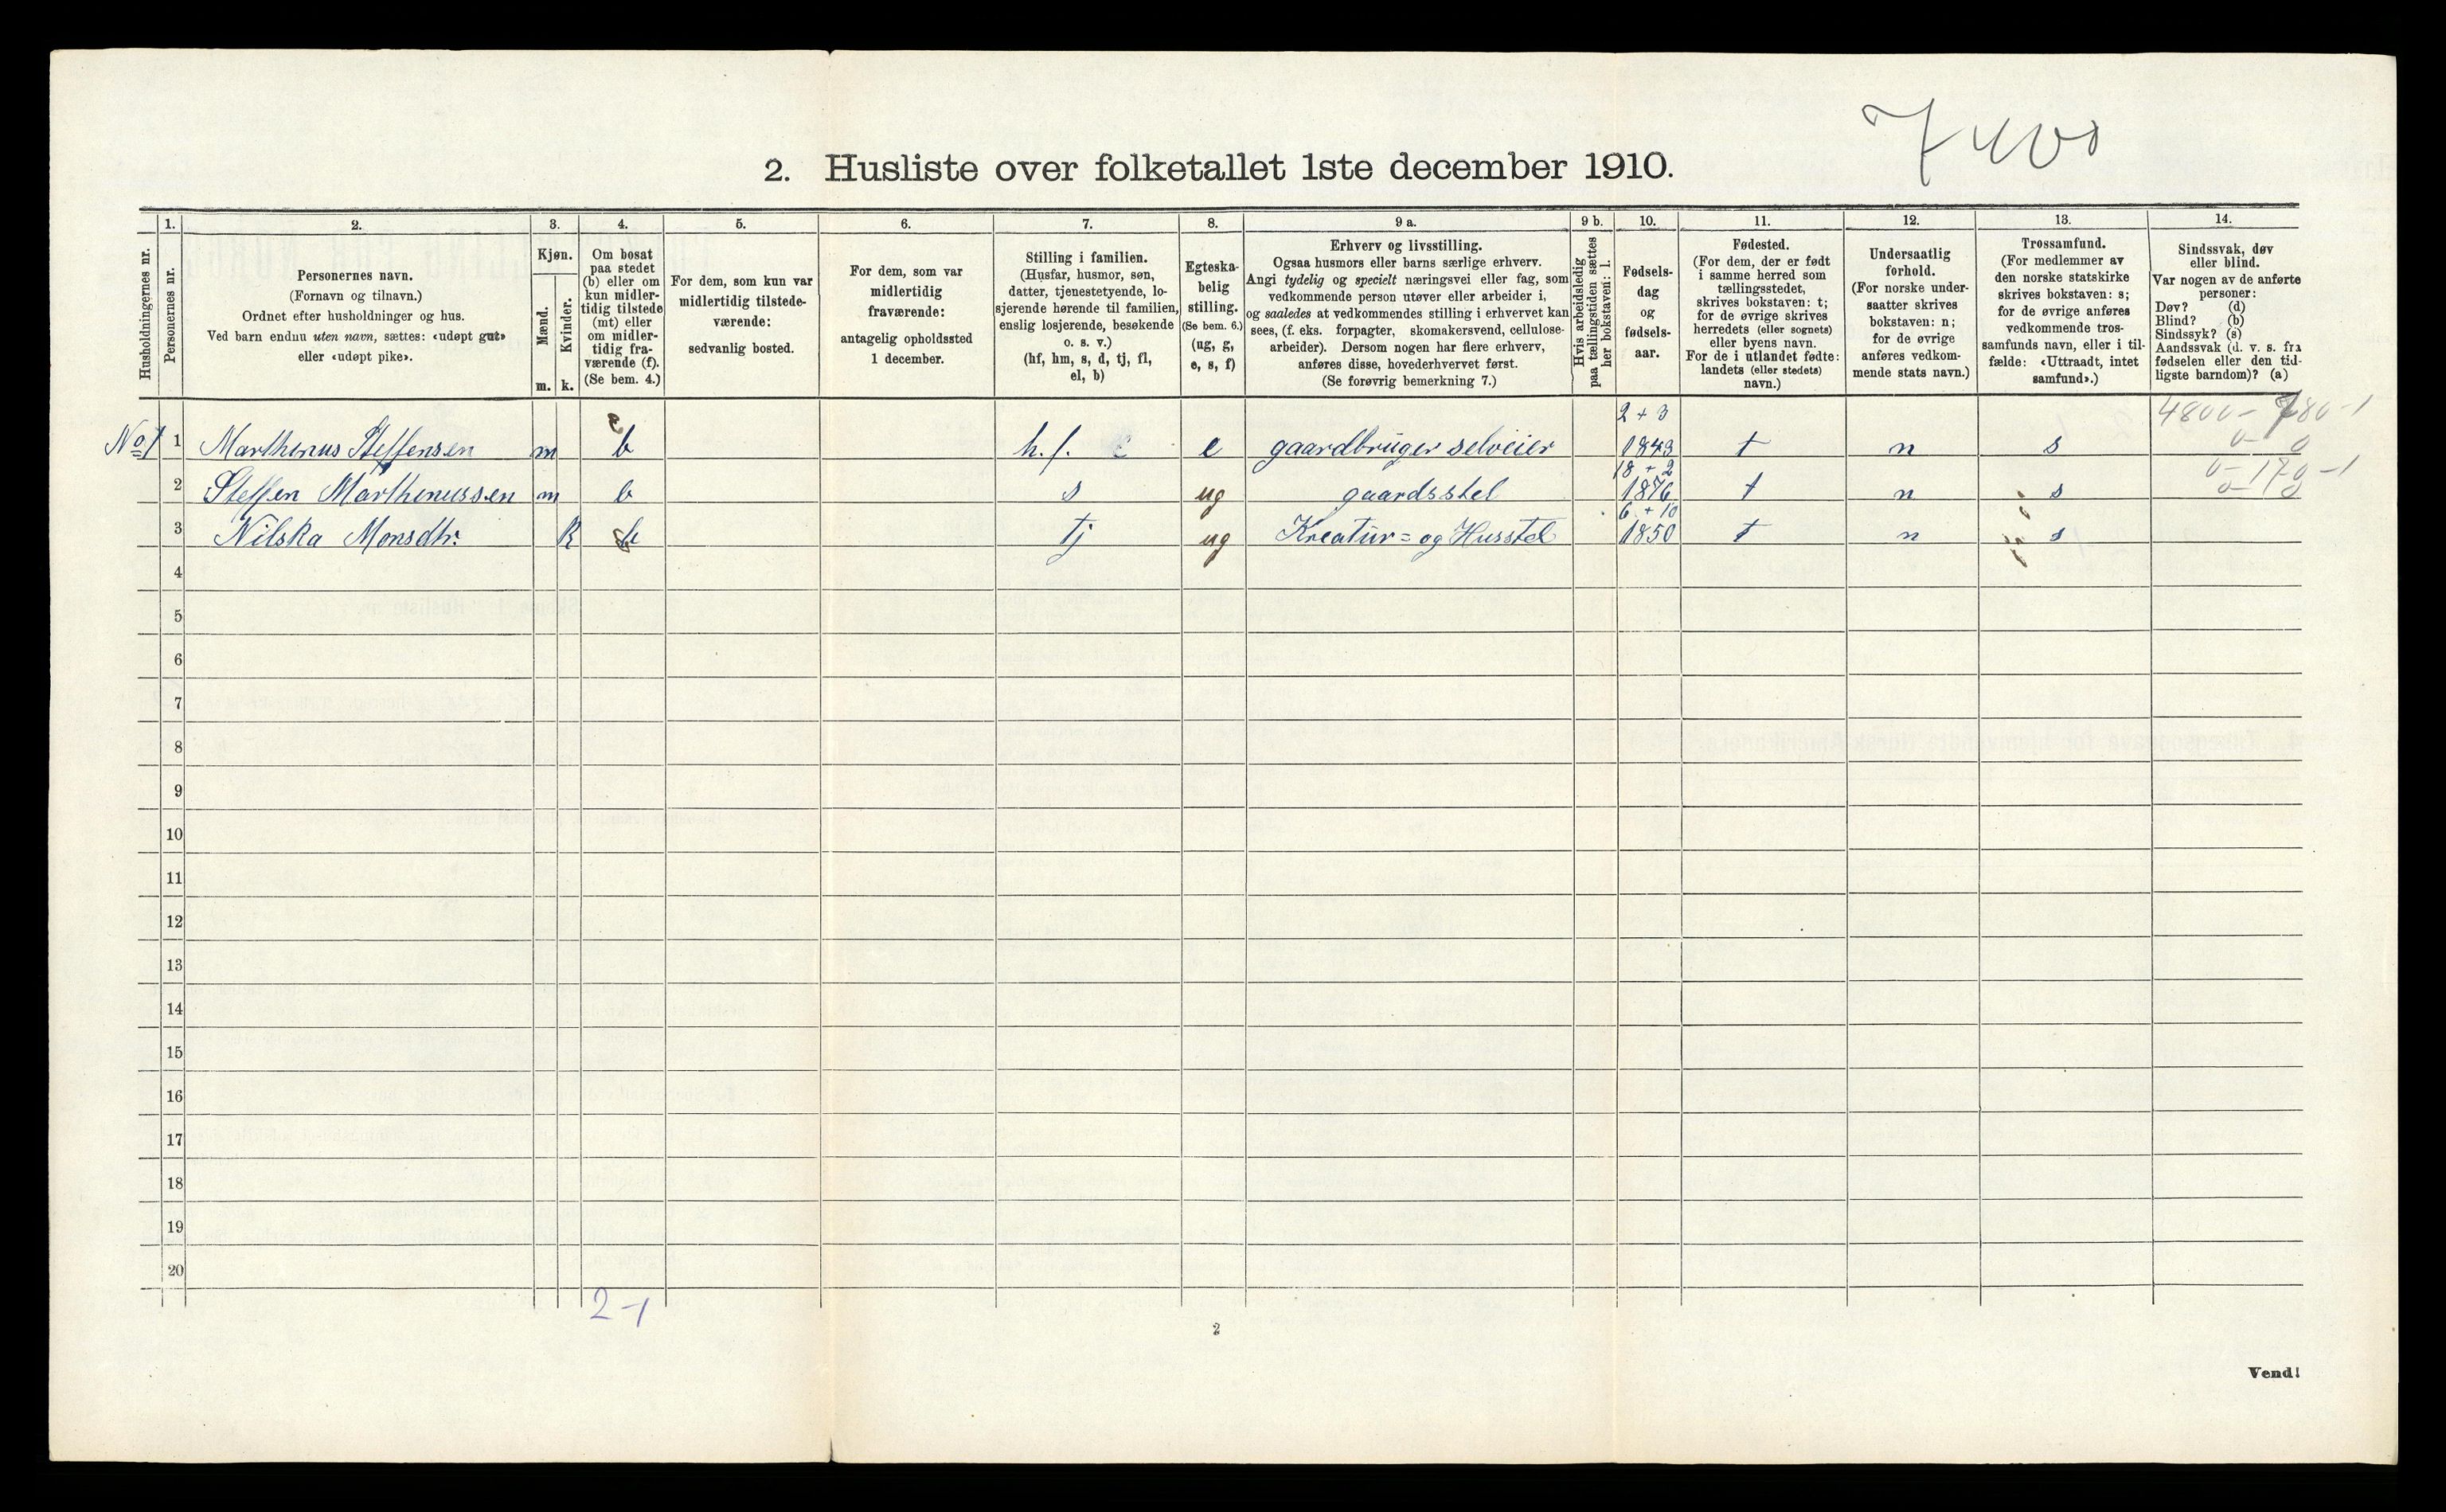 7400
2. Husliste over folketallet 1ste december 1910.
Husholdningernes nr.
1.
Personernes nr.
2.
Personernes navn.
(Fornavn og tilnavn.)
Ordnet efter husholdninger og hus.
Ved barn endnu uten navn, sættes: «udøpt gut»
eller «udøpt pike».
3.
Kjøn.
Mænd.
m.
Kvinder.
k.
4.
Om bosat
paa stedet
(b) eller om
kun midler-
tidig tilstede
(mt) eller
om midler-
tidig fra-
værende (f).
(Se bem. 4.)
5.
For dem, som kun var
midlertidig tilstede-
værende:
sedvanlig bosted.
6.
For dem, som var
midlertidig
fraværende:
antagelig opholdssted
1 december.
7.
Stilling i familien.
(Husfar, husmor, søn,
datter, tjenestetyende, lo-
sjerende hørende til familien,
enslig losjerende, besøkende
o. s. v.)
(hf, hm, s, d, tj, fl,
el, b)
8.
Egteska-
belig
stilling.
(Se bem. 6.)
(ug, g,
e, s, f)
9 a.
Erhverv og livsstilling.
Ogsaa husmors eller barns særlige erhverv.
Angi tydelig og specielt næringsvei eller fag, som
vedkommende person utøver eller arbeider i,
og saaledes at vedkommendes stilling i erhvervet kan
sees, (f. eks. forpagter, skomakersvend, cellulose-
arbeider). Dersom nogen har flere erhverv,
anføres disse, hovederhvervet først.
(Se forøvrig bemerkning 7.)
9 b.
Hvis arbeidsledig
paa tællingstiden sættes
her bokstaven: l.
10.
Fødsels-
dag
og
fødsels-
aar.
11.
Fødested.
(For dem, der er født
i samme herred som
tællingsstedet,
skrives bokstaven: t;
for de øvrige skrives
herredets (eller sognets)
eller byens navn.
For de i utlandet fødte:
landets (eller stedets)
navn.)
12.
Undersaatlig
forhold.
(For norske under-
saatter skrives
bokstaven: n;
for de øvrige
anføres vedkom-
mende stats navn.)
13.
Trossamfund.
(For medlemmer av
den norske statskirke
skrives bokstaven: s;
for de øvrige anføres
vedkommende tros-
samfunds navn, eller i til-
fælde: «Uttraadt, intet
samfund».)
14.
Sindssvak, døv
eller blind.
Var nogen av de anførte
personer:
Døv? (d)
Blind? (b)
Sindssyk? (s)
Aandssvak (d. v. s. fra
fødselen eller den tid-
ligste barndom)? (a)
No 1 1 Marthinus Steffensen m b h. f. e gaardbruger selveier 2 + 3 1843 t n s 4800-
0- 0
2 Steffen Marthinussen m b s ug gaardsstel 18 + 2 1876 t n s 0-170-1
3 Nilska Monsdtr. k b tj ug Kreatur= og Husstel 6 + 10 1850 t n s
4
5
6
7
8
9
10
11
12
13
14
15
16
17
18
19
20
2-1
2
Vend!